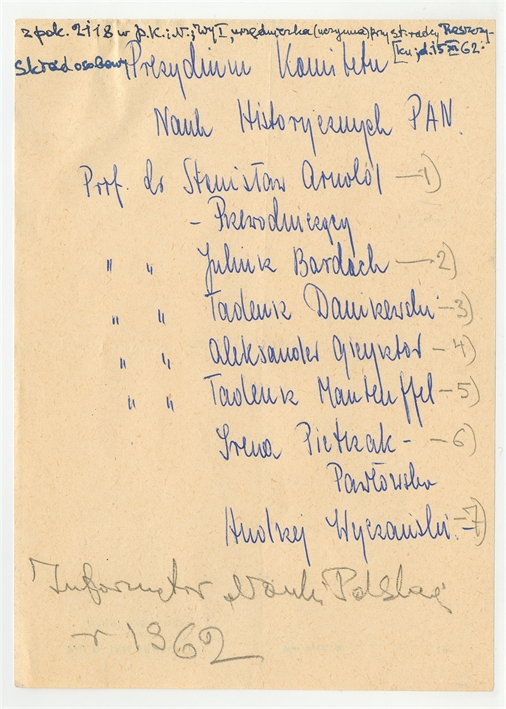 z pok. 2118 w P.K.i.N.; Wy I, urzędniczka (uczynna) przy st. radcy Reszczy-
ku; d. 15 XI 62.
Skład osobowy Prezydium Komitetu
Nauk Historycznych PAN.
Prof. dr Stanisław Arnold —1)
– Przewodniczący
" " Juliusz Bardach —2)
" " Tadeusz Daniszewski —3)
" " Aleksander Gieysztor —4)
" " Tadeusz Manteuffel —5)
Irena Pietrzak- —6)
Pawłowska
Andrzej Wyczański. —7)
Informator „Nauki Polskiej"
r 1962